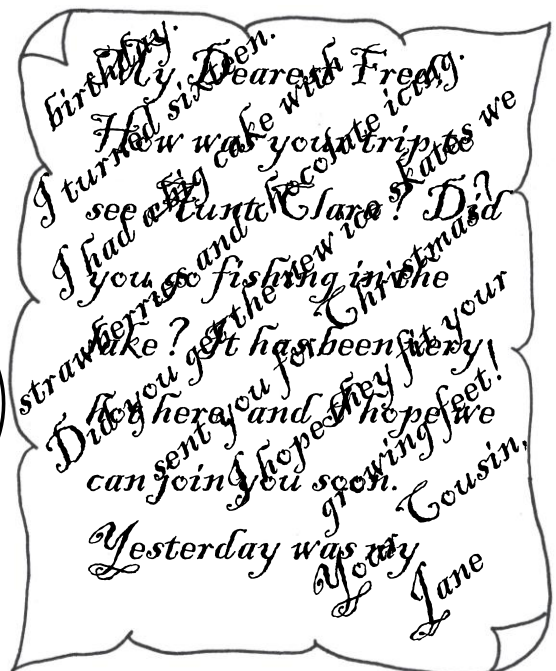 My Dearest Fred,
How was your trip to
see Aunt Clara? Did
you go fishing in the
lake? It has been very
hot here, and I hope we
can join you soon.
Yesterday was my
birthday.
I turned sixteen.
I had a big cake with
strawberries and chocolate icing.
Did you get the new ice skates we
sent you for Christmas?
I hope they fit your
growing feet!
Your Cousin,
Jane